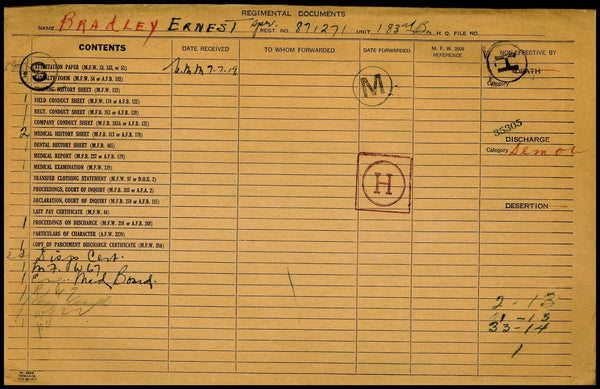 REGIMENTAL DOCUMENTS
NAME BRADLEY ERNEST Spr. REGT. NO. 871271 UNIT 183rd Bn. H. Q. FILE NO.
CONTENTS DATE RECEIVED TO WHOM FORWARDED DATE FORWARDED M. F. W. 2505 REFERENCE NON-EFFECTIVE BY
ATTESTATION PAPER (M.F.W. 23, 133, or 51) 7-7-19 M H DEATH
CASUALTY FORM (M.F.W. 54 or A.F.B. 103) Category
TRAINING HISTORY SHEET (M.F.W. 113)
1 FIELD CONDUCT SHEET (M.F.W. 178 or A.F.B. 122)
1 REGT. CONDUCT SHEET (M.F.B. 263 or A.F.B. 120)
1 COMPANY CONDUCT SHEET (M.F.B. 263A or A.F.B. 121)
2 MEDICAL HISTORY SHEET (M.F.B. 313 or A.F.B. 178) 35305
1 DENTAL HISTORY SHEET (M.F.B. 465) DISCHARGE
MEDICAL REPORT (M.F.B. 227 or A.F.B. 179) Category Demob
1 MEDICAL EXAMINATION (M.F.W. 129)
TRANSFER CLOTHING STATEMENT (M.F.W. 97 or D.O.S. 2) H
PROCEEDINGS, COURT OF INQUIRY (M.F.B. 303 or A.F.A. 2)
DECLARATION, COURT OF INQUIRY (M.F.B. 259 or A.F.B. 115) DESERTION
LAST PAY CERTIFICATE (M.F.W. 44)
1 PROCEEDINGS ON DISCHARGE (M.F.W. 218 or A.F.B. 268)
PARTICULARS OF CHARACTER (A.F.W. 3226)
1 COPY OF PARCHMENT DISCHARGE CERTIFICATE (M.F.W. 39A)
Disp Cert.
1 M.F.W 67
1 Med Board.
2-13
1-13
33-14
1